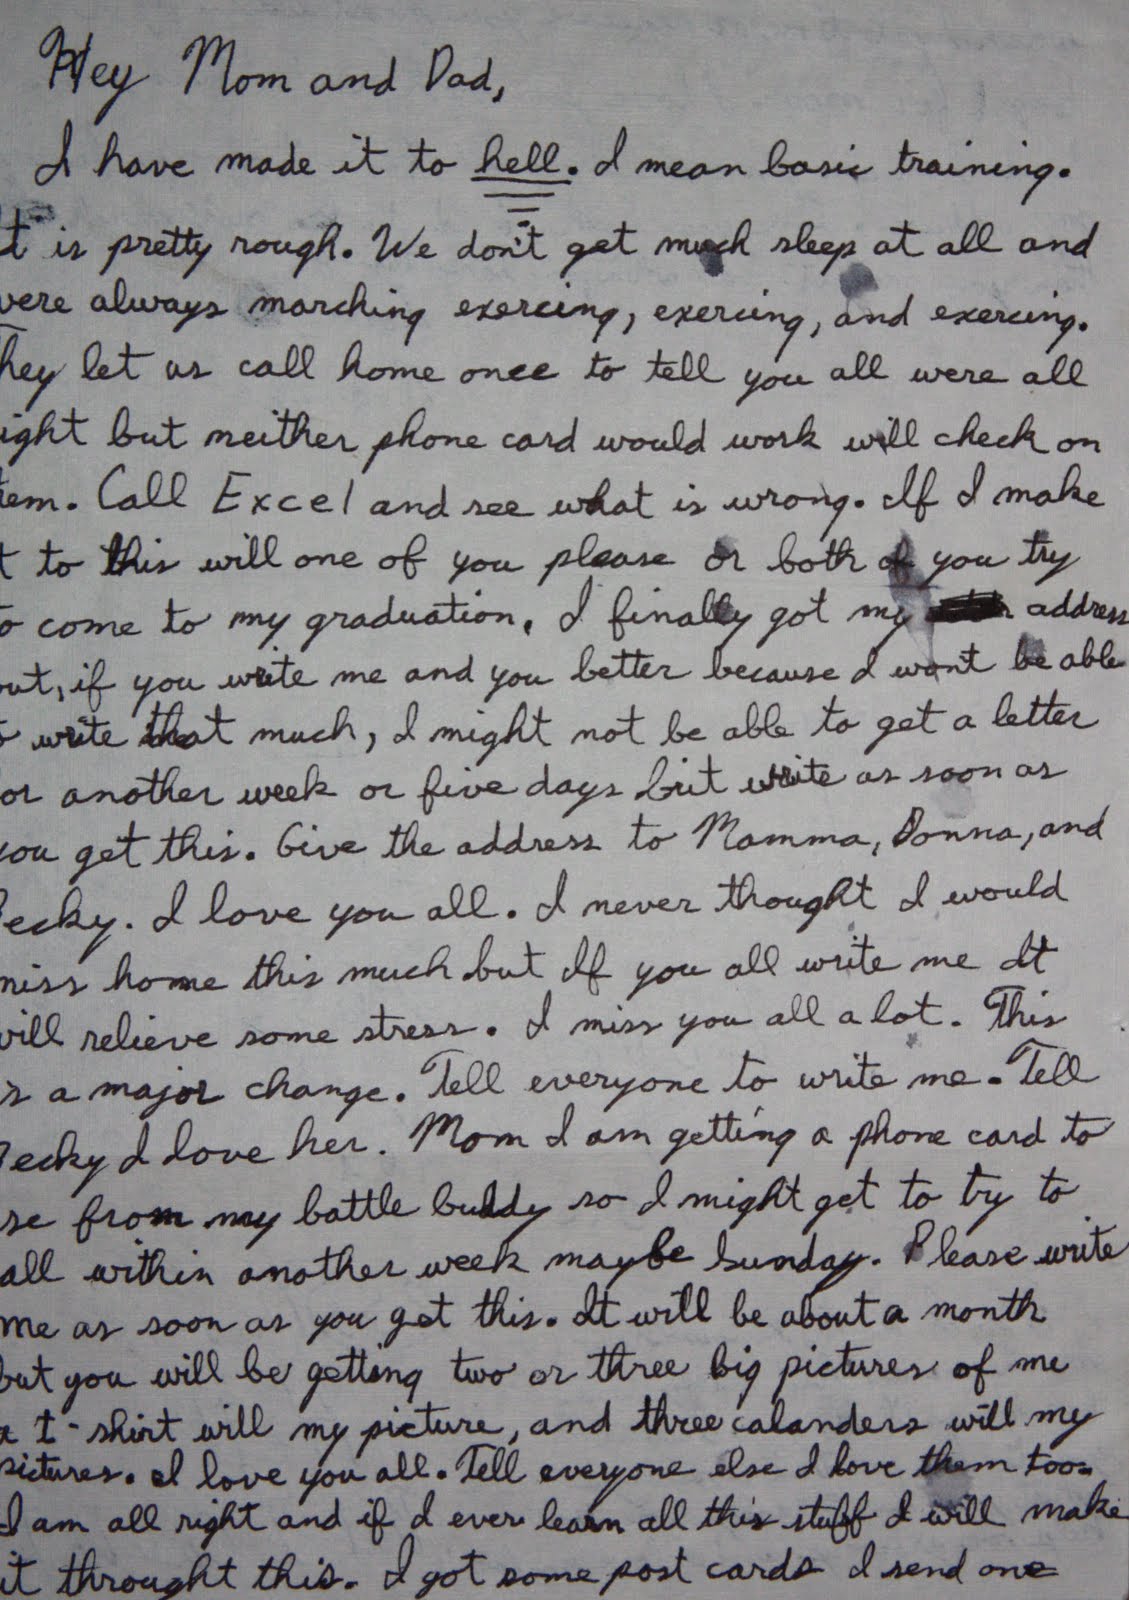 Hey Mom and Dad,
I have made it to hell. I mean basic training.
t is pretty rough. We don't get much sleep at all and
were always marching exercing, exercing, and exercing.
They let us call home once to tell you all were all
ight but neither phone card would work will check on
em. Call Excel and see what is wrong. If I make
t to this will one of you please or both of you try
o come to my graduation. I finally got my address
out, if you write me and you better because I wont be able
o write that much, I might not be able to get a letter
or another week or five days but write as soon as
you get this. Give the address to Mamma, Donna, and
ecky. I love you all. I never thought I would
miss home this much but If you all write me It
will relieve some stress. I miss you all a lot. This
is a major change. Tell everyone to write me. Tell
ecky I love her. Mom I am getting a phone card to
se from my battle buddy so I might get to try to
all within another week maybe Sunday. Please write
me as soon as you get this. It will be about a month
but you will be getting two or three big pictures of me
a t-shirt will my picture, and three calanders will my
pictures. I love you all. Tell everyone else I love them too.
I am all right and if I ever learn all this stuff I will make
it throught this. I got some post cards I send one